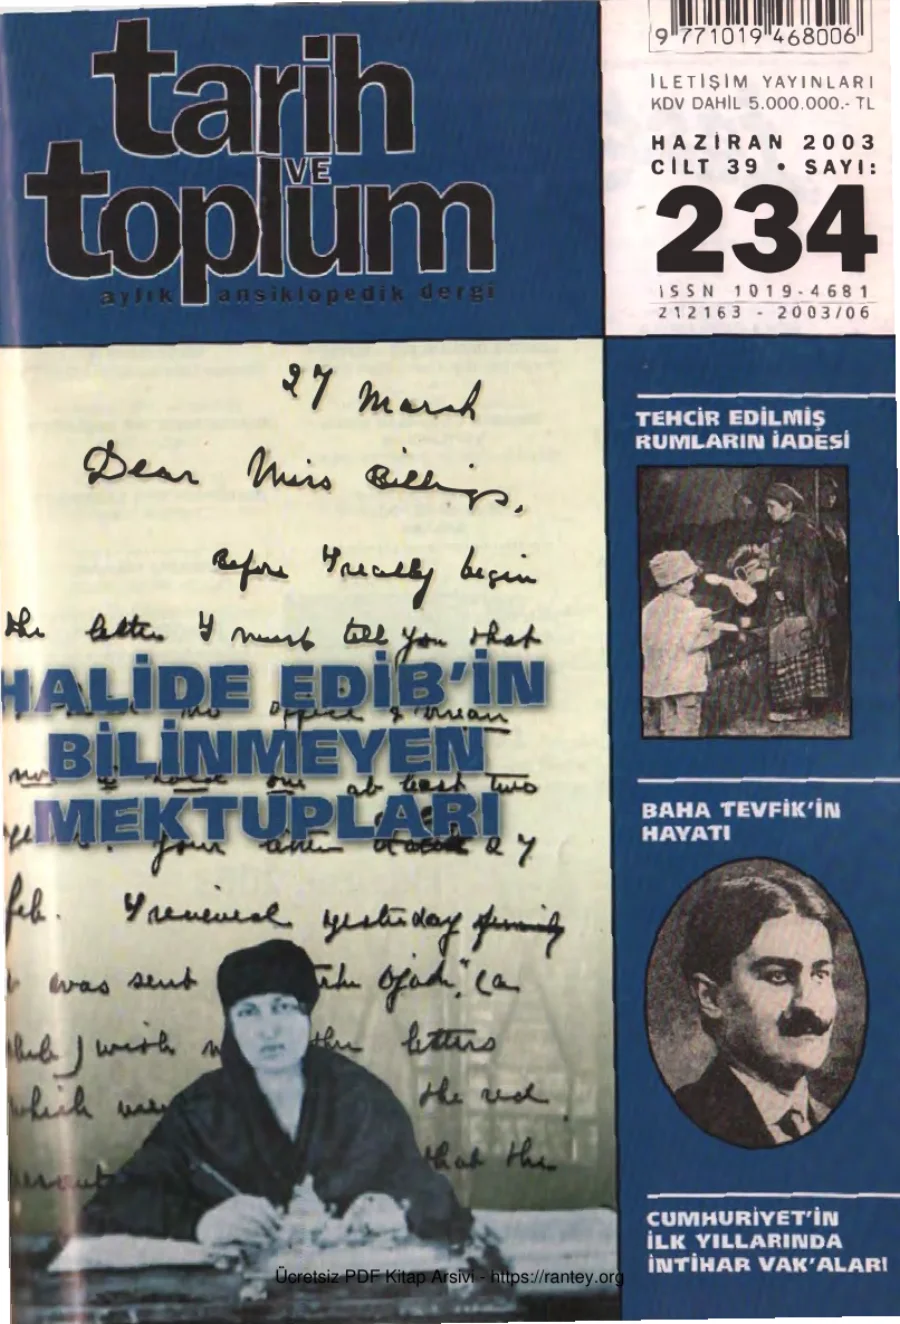 tarih
VE
toplum
aylık ansiklopedik dergi
9 771019 468006
İLETİŞİM YAYINLARI
KDV DAHİL 5.000.000.- TL
HAZİRAN 2003
CİLT 39 • SAYI:
234
ISSN 1019-4681
212163 - 2003/06
27 March
Dear Miss Billings,
Before I really begin
the letter I must tell you that
HALİDE EDİB'İN
BİLİNMEYEN
MEKTUPLARI
office I mean
one at least two
Your letter 27
feb. I received yesterday
was sent the Ojak" (a
I wish the letters
which were the red
that the
TEHCİR EDİLMİŞ
RUMLARIN İADESİ
BAHA TEVFİK'İN
HAYATI
CUMHURİYET'İN
İLK YILLARINDA
İNTİHAR VAK'ALARI
Ücretsiz PDF Kitap Arsivi - https://rantey.org